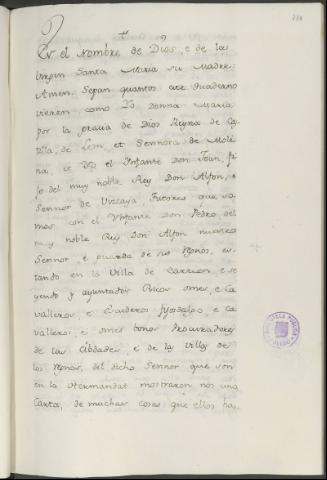 En el Nombre de Dios, e de la
Virgen Santa Maria su Madre
Amen. Sepan quantos este quaderno
vieren, como Yo Donna Maria
por la gracia de Dios Reyna de Cas-
tilla, de Leon, et Sennora de Moli-
na, e Yo el Infante Don Joan, fi-
jo del muy noble Rey Don Alfon, e
Sennor de Vizcaya, Tutores que so-
mos con el Infante Don Pedro del
muy noble Rey Don Alfon nuestro
Sennor e guarda de sus Regnos, es-
tando en la Villa de Carrion, e se-
yendo y ayuntados Ricos omes, e Ca-
valleros, e Escuderos fijosdalgo, e Ca-
valleros, e omes bonos Procuradores
de las Cibdades, e de las Villas de
los Regnos, del dicho Sennor que son
en la Hermandat mostraron nos una
Carta, de muchas cosas que ellos ha-